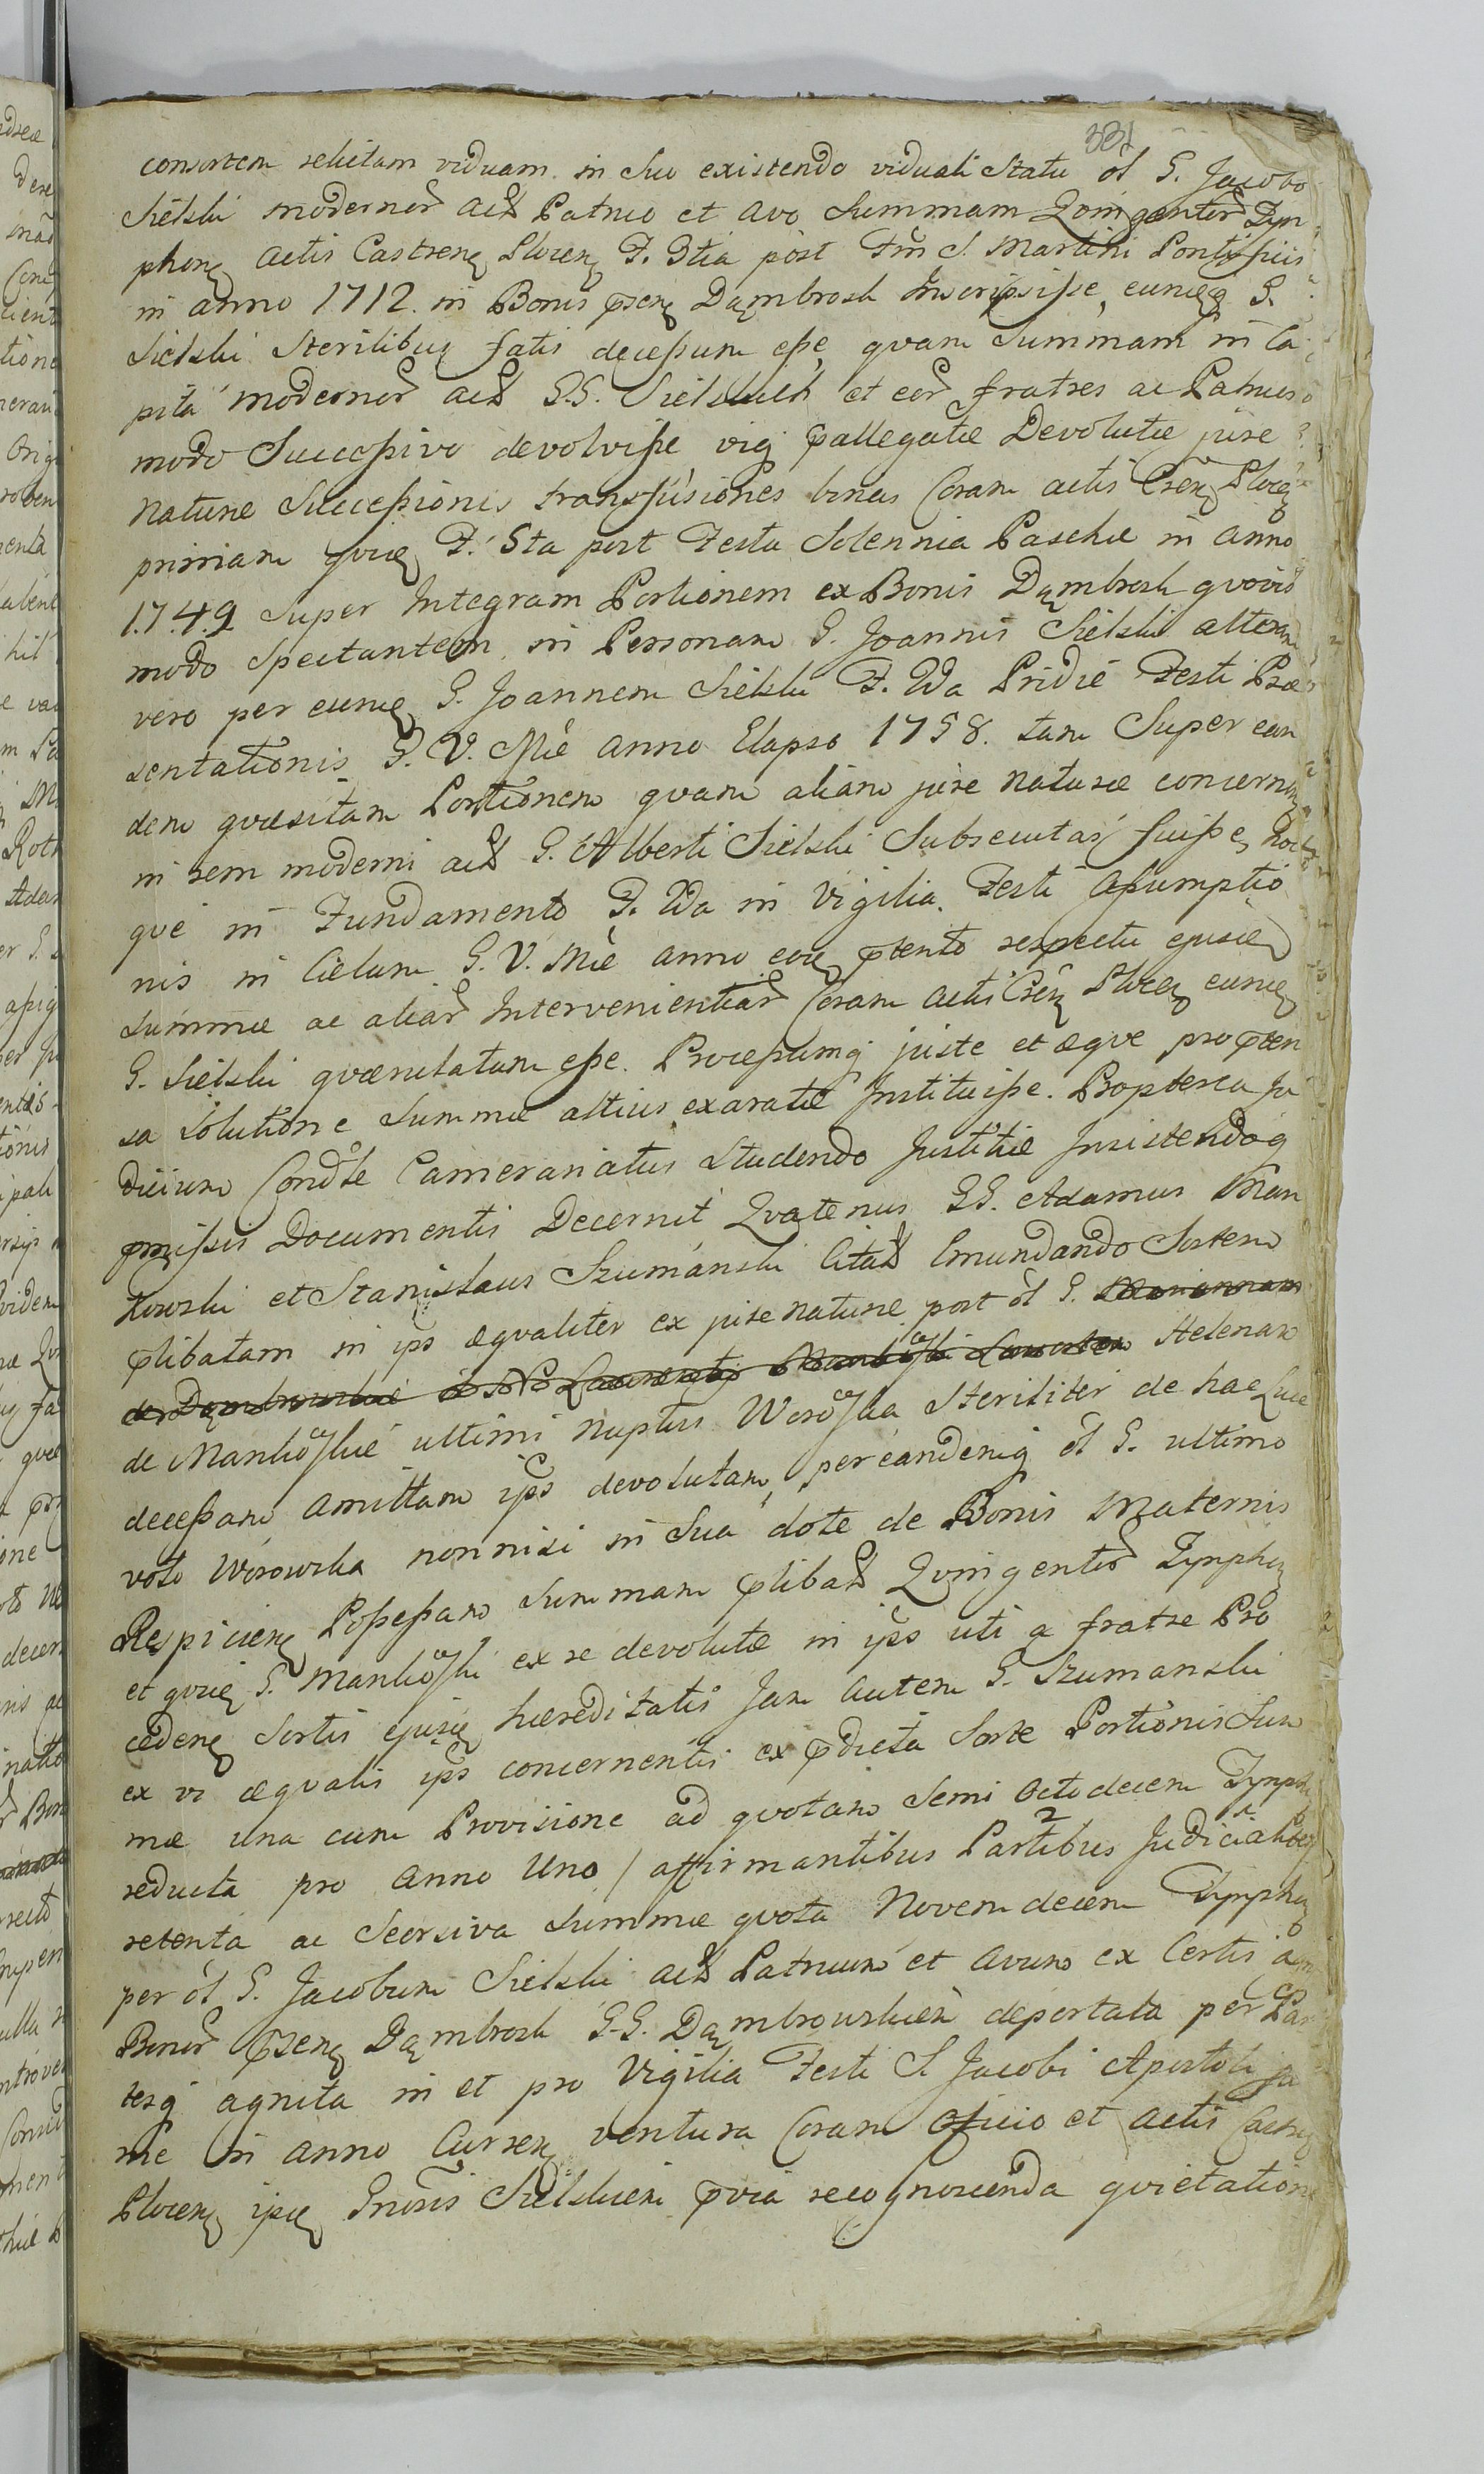 331
consortem relictam viduam in suo existendo viduali Statu ol G. Jacobo
Sielski modernor act Patruo et Avo Summam Qvingentor Tyn
phonę Actis Castrenę Plocenę F. 3tia post Fm S. Martini Pontificis
in anno 1712. in Bonis pſenę Dąmbrosk Inscripsiſſe, eumęq G.
Sielski Sterilibuę fatis deceſſum eſſe, qvam Summam in Ca
pita modernor act G.G. Sielskich et eor fratres ac Patruos
modo Succeſſivo devolviſſe vig pallegatæ Devolutæ jure
Naturæ Succeſſionis transfusiones binas Coram actis Cſenę Plocę
primam qvię F. 5ta post Festa Solennia Paschæ in anno
1.7.4.9 Super Integram Portionem ex Bonis Dąmbrosk qvovis
modo Spectantem in Personam G. Joannis Sielski alteram
vero per eumę G. Joannem Sielski F. 2da Pridie Festi Præ
sentationis B. V. Mie Anno Elapso 1758. tam Super ean
dem qvæsitam Portionem qvam aliam jure Naturæ concernenę
in rem moderni act G. Alberti Sielski Subsecutas fuiſſe, hoc
que in Fundamento F. 2da in Vigilia Festi Aſſumptio
nis in Cælum B. V. Mie anno eoę ptento respectu ejusdę
Summæ ac aliar Intervenientiar Coram Actis Cſenę Plocę eumę
G. Sielski qværulatum eſſe. Proceſſumq juste et æqve pro pten
sa Solutione Summæ altius exaratæ Instituiſſe. Propterea Ju
dicium Condle Camerariatus Studendo Justitiæ Insistendoq
pmiſſis Documentis Decernit Qvatenus GG. Adamus Man
kowski et Stanislaus Szumanski Citat Emundando Sortem
plibatam in ips æqvaliter ex jure naturæ post ol G. Mariannam
Helenam
de Mankoſkie ultimi Nuptus Woroſka Steriliter de hac Luce
deceſſam Amittam ips devolutam, per eandemq ol G. ultimo
voto Worowska nonnisi in Sua dote de Bonis Maternis
Respicienę Poſſeſſam Summam plibat Qvingentor Tynphę
et qvię G. Mankoſki ex se devolutæ in ips uti a fratre Pro
cedenę Sortis ejusę hæreditatis Jam Autem G. Szumanski
ex vi æqvalis ips concernentis ex pdicta Sorte Portionis Sum
mæ una cum Provisione ad qvotam Semi Octodecem Tynphę
reducta pro Anno Uno / affirmantibus Partibus Judicialiter
retenta ac Seorsiva Summæ qvota Novem decem Tynphę
per ol G. Jacobum Sielski act Patruum et Avum ex Certis agris
Bonor pſenę Dąmbrosk G.G. Dąmbrowskich deportata per Par
tesq agnita in et pro Vigilia Festi S Jacobi Apostoli pu
me in anno Currenę ventura Coram Oficio et Actis Castrę
Plocenę ipsę Gnosis Sielskiem pvia recognoscenda qvietatione